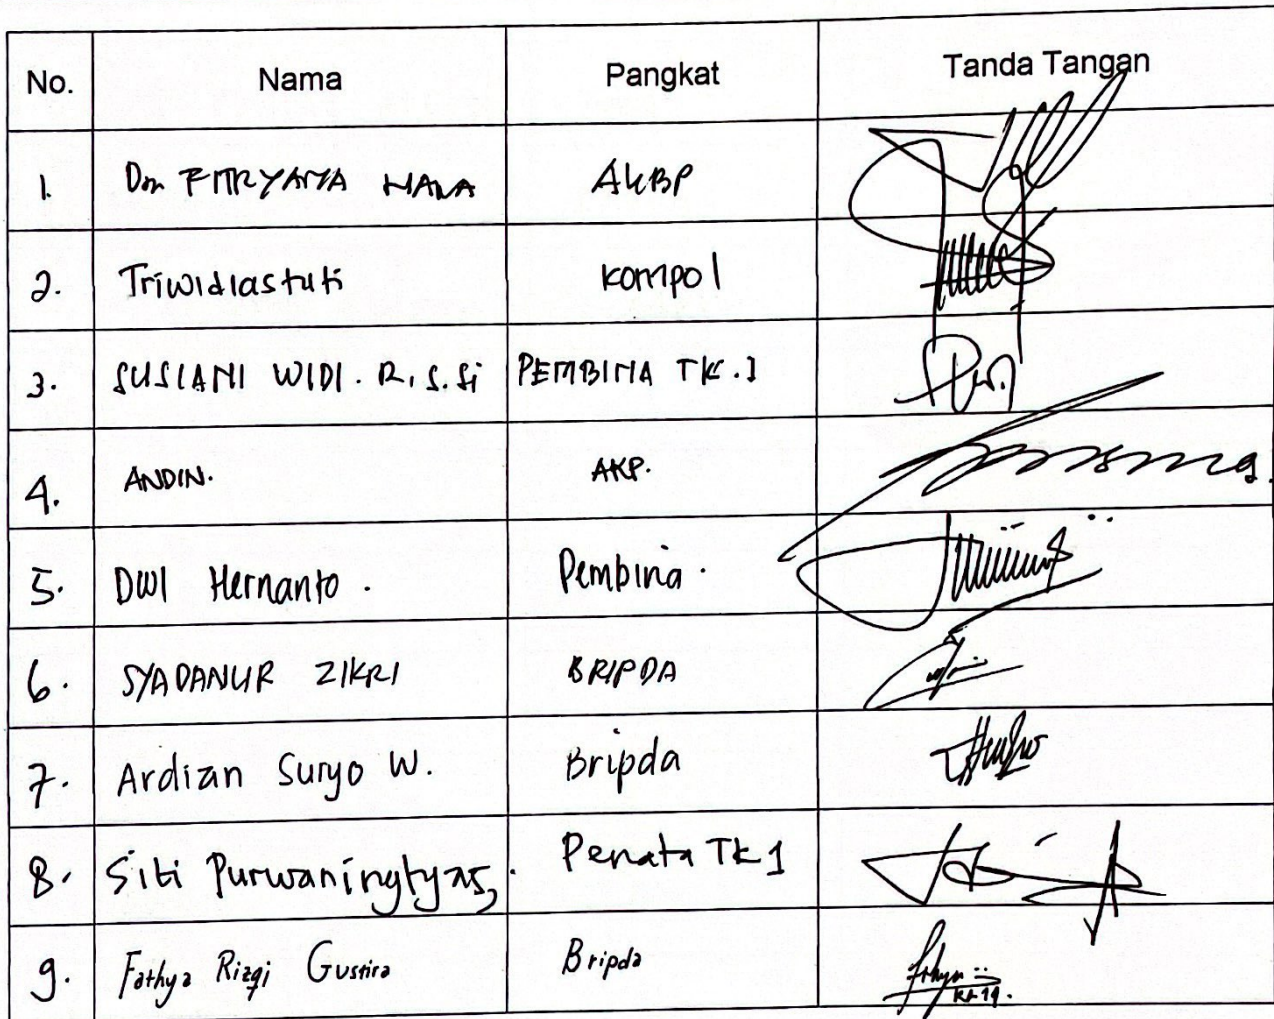 No. Nama Pangkat Tanda Tangan
1. FITRYANA HAWA AKBP
2. Triwidiastuti Kompol
3. SUSIANI WIDI. R, S.Si PEMBINA TK.I
4. ANDIN. AKP.
5. DWI Hernanto. Pembina.
6. SYADANUR ZIKRI BRIPDA
7. Ardian Suryo W. Bripda
8. Siti Purwaningtyas, Penata TK 1
9. Fathya Rizqi Gustira Bripda